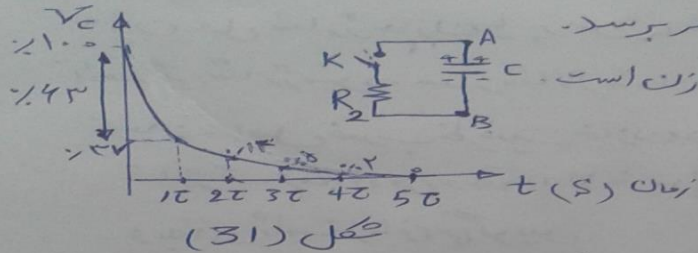 Vc
٪۱۰۰
٪۶۳
٪۳۷
٪۱۴
٪۵
٪۲
1τ 2τ 3τ 4τ 5τ
t (S) زمان
K
R2
A
C
B
برسد.
زن است.
شکل (31)